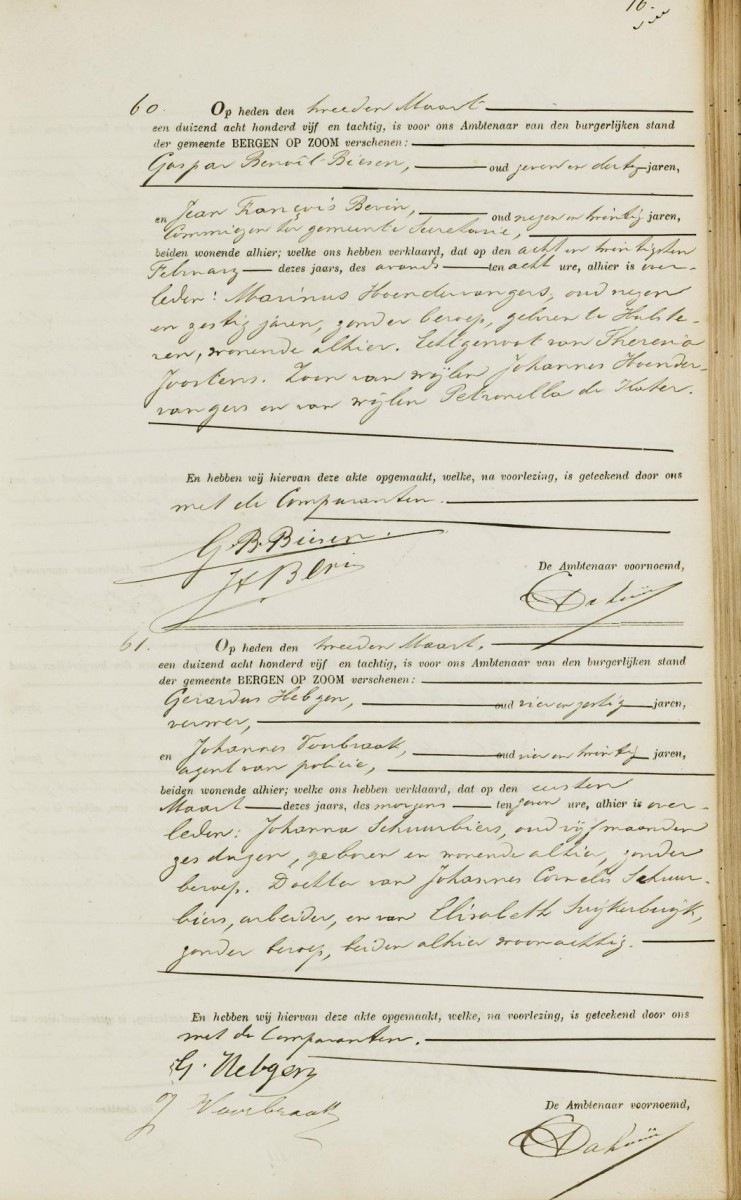 16.
60. Op heden den tweeden Maart
een duizend acht honderd vijf en tachtig, is voor ons Ambtenaar van den burgerlijken stand
der gemeente BERGEN OP ZOOM verschenen:
Gaspar Benoît Biesen, oud zeven en dertig jaren,
en Jean François Bevin, oud negen en twintig jaren,
Commiezen ter gemeente Secretarie,
beiden wonende alhier; welke ons hebben verklaard, dat op den acht en twintigsten
February dezes jaars, des avonds ten acht ure, alhier is over-
leden: Marinus Hoendervangers, oud negen
en zestig jaren, zonder beroep, geboren te Halste-
ren, wonende alhier. Echtgenoot van Theresia
Joostens. Zoon van wijlen Johannes Hoender-
vangers en van wijlen Petronella de Kater.
En hebben wij hiervan deze akte opgemaakt, welke, na voorlezing, is geteekend door ons
met de Comparanten.
G. B. Biesen.
De Ambtenaar voornoemd,
61. Op heden den tweeden Maart,
een duizend acht honderd vijf en tachtig, is voor ons Ambtenaar van den burgerlijken stand
der gemeente BERGEN OP ZOOM verschenen:
Gerardus Hebgen, oud vier en zestig jaren,
verwer,
en Johannes Voorbraak, oud vier en twintig jaren,
agent van policie,
beiden wonende alhier; welke ons hebben verklaard, dat op den eersten
Maart dezes jaars, des morgens ten zeven ure, alhier is over-
leden: Johanna Schuurbiers, oud vijf maanden
zes dagen, geboren en wonende alhier, zonder
beroep. Dochter van Johannes Cornelis Schuur-
biers, arbeider, en van Elisabeth Suijkerbuijk,
zonder beroep, beiden alhier woonachtig.
En hebben wij hiervan deze akte opgemaakt, welke, na voorlezing, is geteekend door ons
met de Comparanten.
G. Hebgen
J Voorbraak
De Ambtenaar voornoemd,